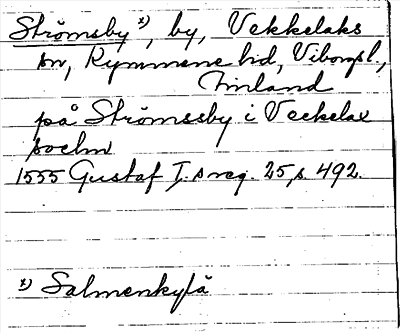 Strömsby x), by, Vekkelaks
sn, Kymmene hd, Viborgsl.,
Finland
på Strömssby i Veckelax
sochn
1555 Gustaf I:s reg. 25, s. 492.
x) Salmenkylä